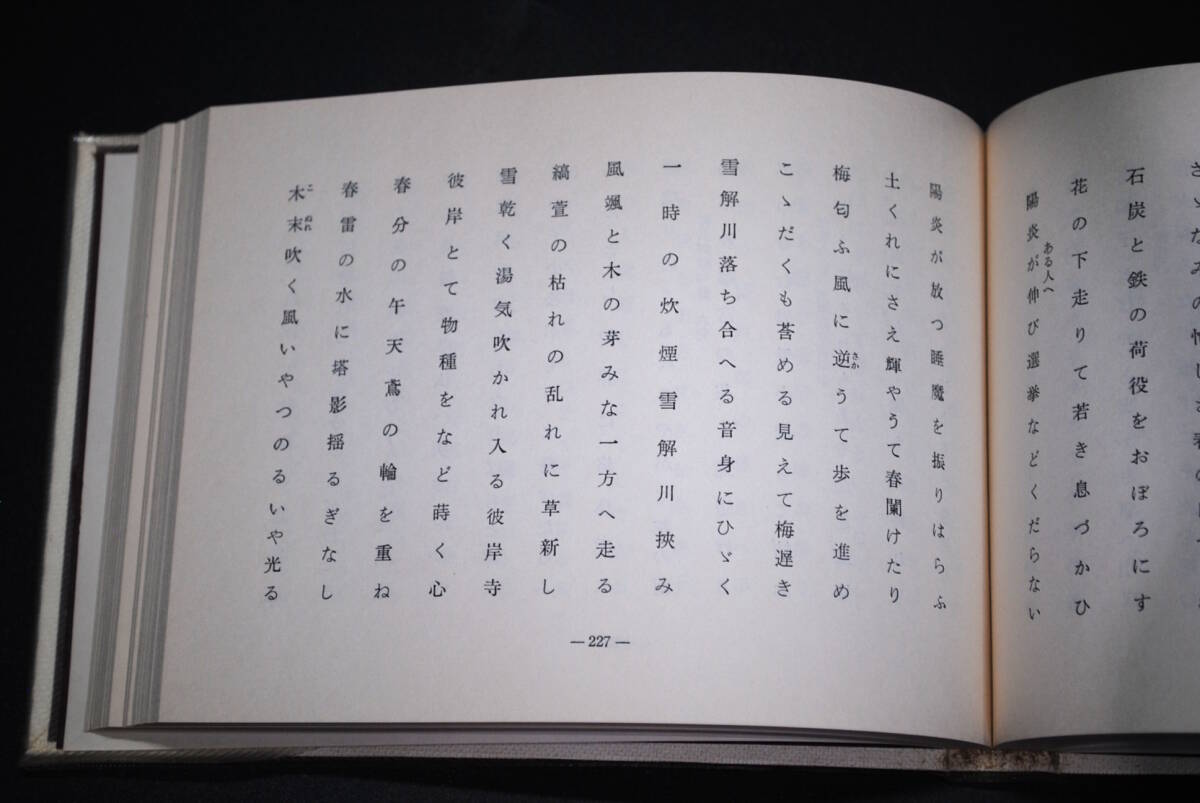 石炭と鉄の荷役をおぼろにす
花の下走りて若き息づかひ
ある人へ
陽炎が伸び選挙などくだらない
陽炎が放つ睡魔を振りはらふ
土くれにさえ輝やうて春闌けたり
梅匂ふ風に逆うて歩を進め
さか
こゝだくも莟める見えて梅遅き
雪解川落ち合へる音身にひゞく
一時の炊煙雪解川挟み
風颯と木の芽みな一方へ走る
縞萱の枯れの乱れに草新し
雪乾く湯気吹かれ入る彼岸寺
彼岸とて物種をなど蒔く心
春分の午天鳶の輪を重ね
春雷の水に塔影揺るぎなし
木末吹く風いやつのるいや光る
こぬれ
—227—